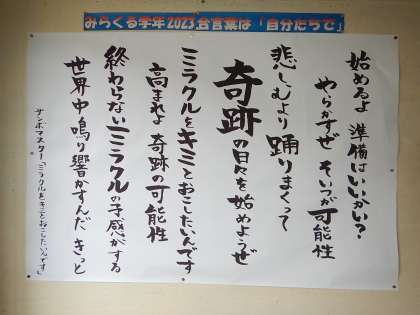 みらくる学年2023合言葉は「自分たちで」
始めるよ 準備はいいかい?
やらかすぜ そいつが可能性
悲しむより 踊りまくって
奇跡の日々を始めようぜ
ミラクルをキミとおこしたいんです
高まれよ 奇跡の可能性
終わらないミラクルの予感がする
世界中鳴り響かすんだ きっと
サンボマスター「ミラクルをキミとおこしたいんです」